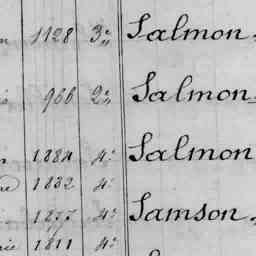 1128 3e Salmon
966 2e Salmon
1884 4e Salmon
1832 4e
1877 4e Samson
1811 4e